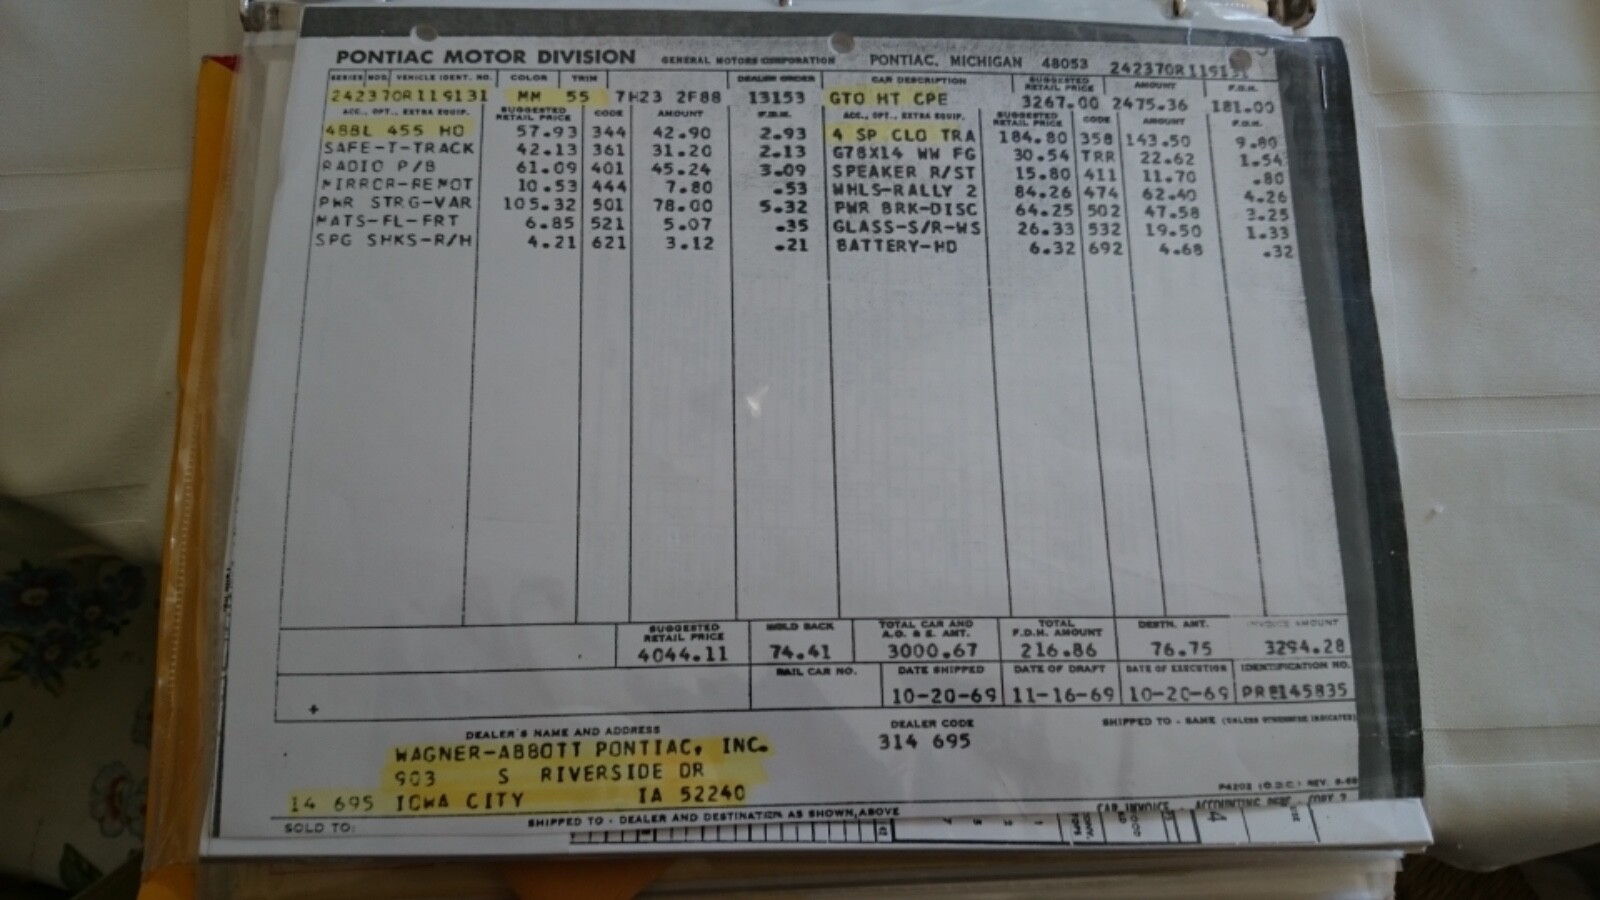 PONTIAC MOTOR DIVISION GENERAL MOTORS CORPORATION PONTIAC, MICHIGAN 48053 242370R119131
SERIES MOD. VEHICLE IDENT. NO. COLOR TRIM DEALER ORDER CAR DESCRIPTION SUGGESTED RETAIL PRICE AMOUNT F.D.H.
242370R119131 MM 55 7H23 2F88 13153 GTO HT CPE 3267.00 2475.36 181.00
ACC., OPT., EXTRA EQUIP. SUGGESTED RETAIL PRICE CODE AMOUNT F.D.H. ACC., OPT., EXTRA EQUIP. SUGGESTED RETAIL PRICE CODE AMOUNT F.D.H.
488L 455 HO 57.93 344 42.90 2.93 4 SP CLO TRA 184.80 358 143.50 9.80
SAFE-T-TRACK 42.13 361 31.20 2.13 G78X14 WW FG 30.54 TRR 22.62 1.54
RADIO P/B 61.09 401 45.24 3.09 SPEAKER R/ST 15.80 411 11.70 .80
MIRROR-REMOT 10.53 444 7.80 .53 WHLS-RALLY 2 84.26 474 62.40 4.26
PWR STRG-VAR 105.32 501 78.00 5.32 PWR BRK-DISC 64.25 502 47.58 3.25
MATS-FL-FRT 6.85 521 5.07 .35 GLASS-S/R-WS 26.33 532 19.50 1.33
SPG SHKS-R/H 4.21 621 3.12 .21 BATTERY-HD 6.32 692 4.68 .32
SUGGESTED RETAIL PRICE HOLD BACK TOTAL CAR AND A.O. & E. AMT. TOTAL F.D.H. AMOUNT DESTN. AMT. INVOICE AMOUNT
4044.11 74.41 3000.67 216.86 76.75 3294.28
RAIL CAR NO. DATE SHIPPED DATE OF DRAFT DATE OF EXECUTION IDENTIFICATION NO.
+ 10-20-69 11-16-69 10-20-69 PR@145835
DEALER'S NAME AND ADDRESS DEALER CODE SHIPPED TO - SAME (UNLESS OTHERWISE INDICATED)
WAGNER-ABBOTT PONTIAC, INC. 314 695
903 S RIVERSIDE DR
14 695 IOWA CITY IA 52240
P4202 (O.D.C.) REV. 8-69
SOLD TO: SHIPPED TO - DEALER AND DESTINATION AS SHOWN ABOVE CAR INVOICE - ACCOUNTING DEPT. - COPY 2